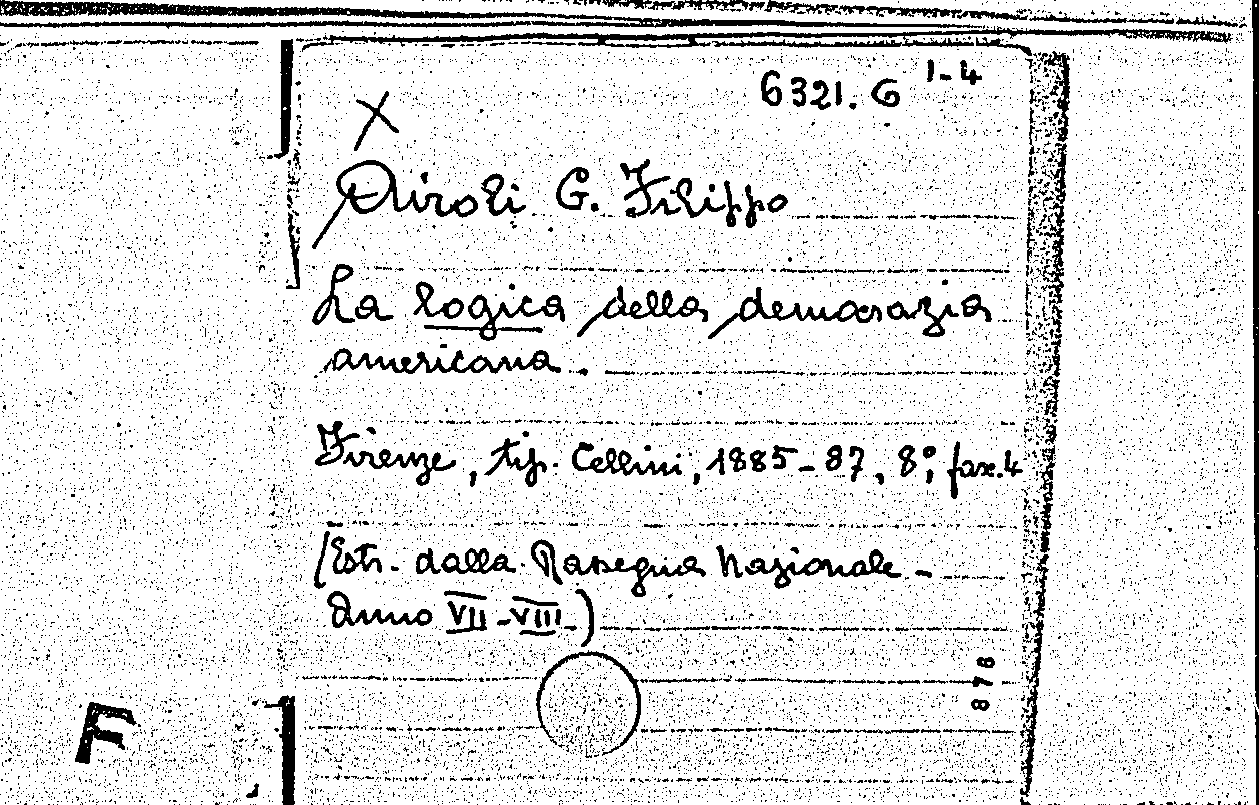 6321. G 1-4
X
Airoli G. Filippo
La logica della democrazia
americana.
Firenze, tip. Cellini, 1885-87, 8°, fasc. 4
(Estr. dalla Rassegna Nazionale -
Anno VII-VIII)
878
F